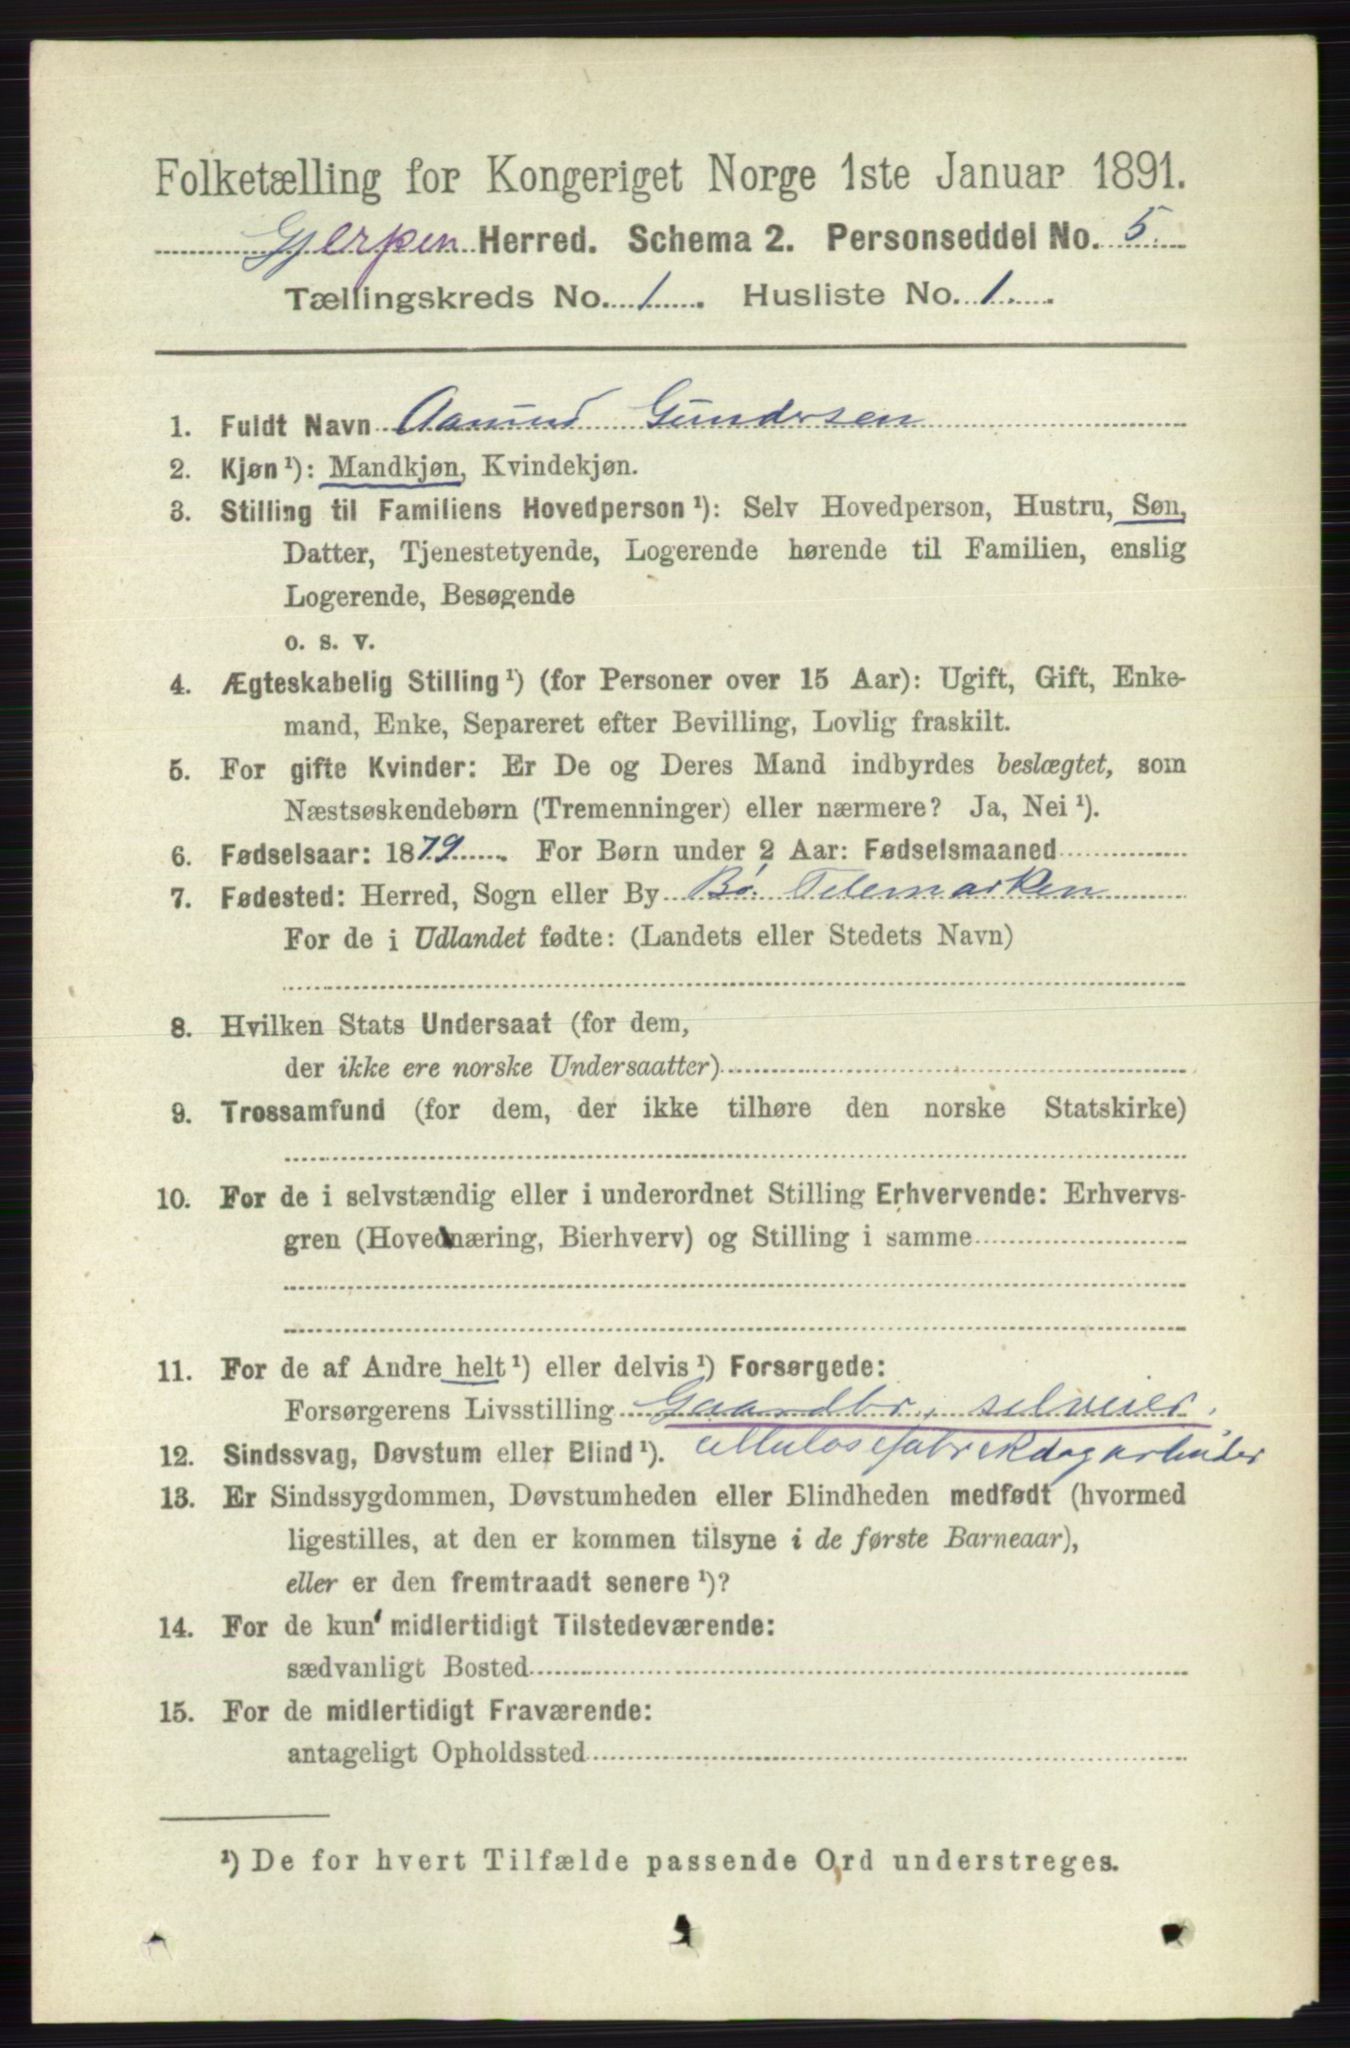 Folketælling for Kongeriget Norge 1ste Januar 1891.
Gjerpen Herred. Schema 2. Personseddel No. 5.
Tællingskreds No. 1. Husliste No. 1.
1. Fuldt Navn Aamund Gundersen
2. Kjøn ¹): Mandkjøn, Kvindekjøn.
3. Stilling til Familiens Hovedperson ¹): Selv Hovedperson, Hustru, Søn,
Datter, Tjenestetyende, Logerende hørende til Familien, enslig
Logerende, Besøgende
o. s. v.
4. Ægteskabelig Stilling ¹) (for Personer over 15 Aar): Ugift, Gift, Enke-
mand, Enke, Separeret efter Bevilling, Lovlig fraskilt.
5. For gifte Kvinder: Er De og Deres Mand indbyrdes beslægtet, som
Næstsøskendebørn (Tremenninger) eller nærmere? Ja, Nei ¹).
6. Fødselsaar: 1879. For Børn under 2 Aar: Fødselsmaaned
7. Fødested: Herred, Sogn eller By Bø. Telemarken
For de i Udlandet fødte: (Landets eller Stedets Navn)
8. Hvilken Stats Undersaat (for dem,
der ikke ere norske Undersaatter)
9. Trossamfund (for dem, der ikke tilhøre den norske Statskirke)
10. For de i selvstændig eller i underordnet Stilling Erhvervende: Erhvervs-
gren (Hovednæring, Bierhverv) og Stilling i samme
11. For de af Andre helt ¹) eller delvis ¹) Forsørgede:
Forsørgerens Livsstilling Gaardbr, selveier,
12. Sindssvag, Døvstum eller Blind ¹). cellulosefabrikdagarbeider
13. Er Sindssygdommen, Døvstumheden eller Blindheden medfødt (hvormed
ligestilles, at den er kommen tilsyne i de første Barneaar),
eller er den fremtraadt senere ¹)?
14. For de kun midlertidigt Tilstedeværende:
sædvanligt Bosted
15. For de midlertidigt Fraværende:
antageligt Opholdssted
¹) De for hvert Tilfælde passende Ord understreges.